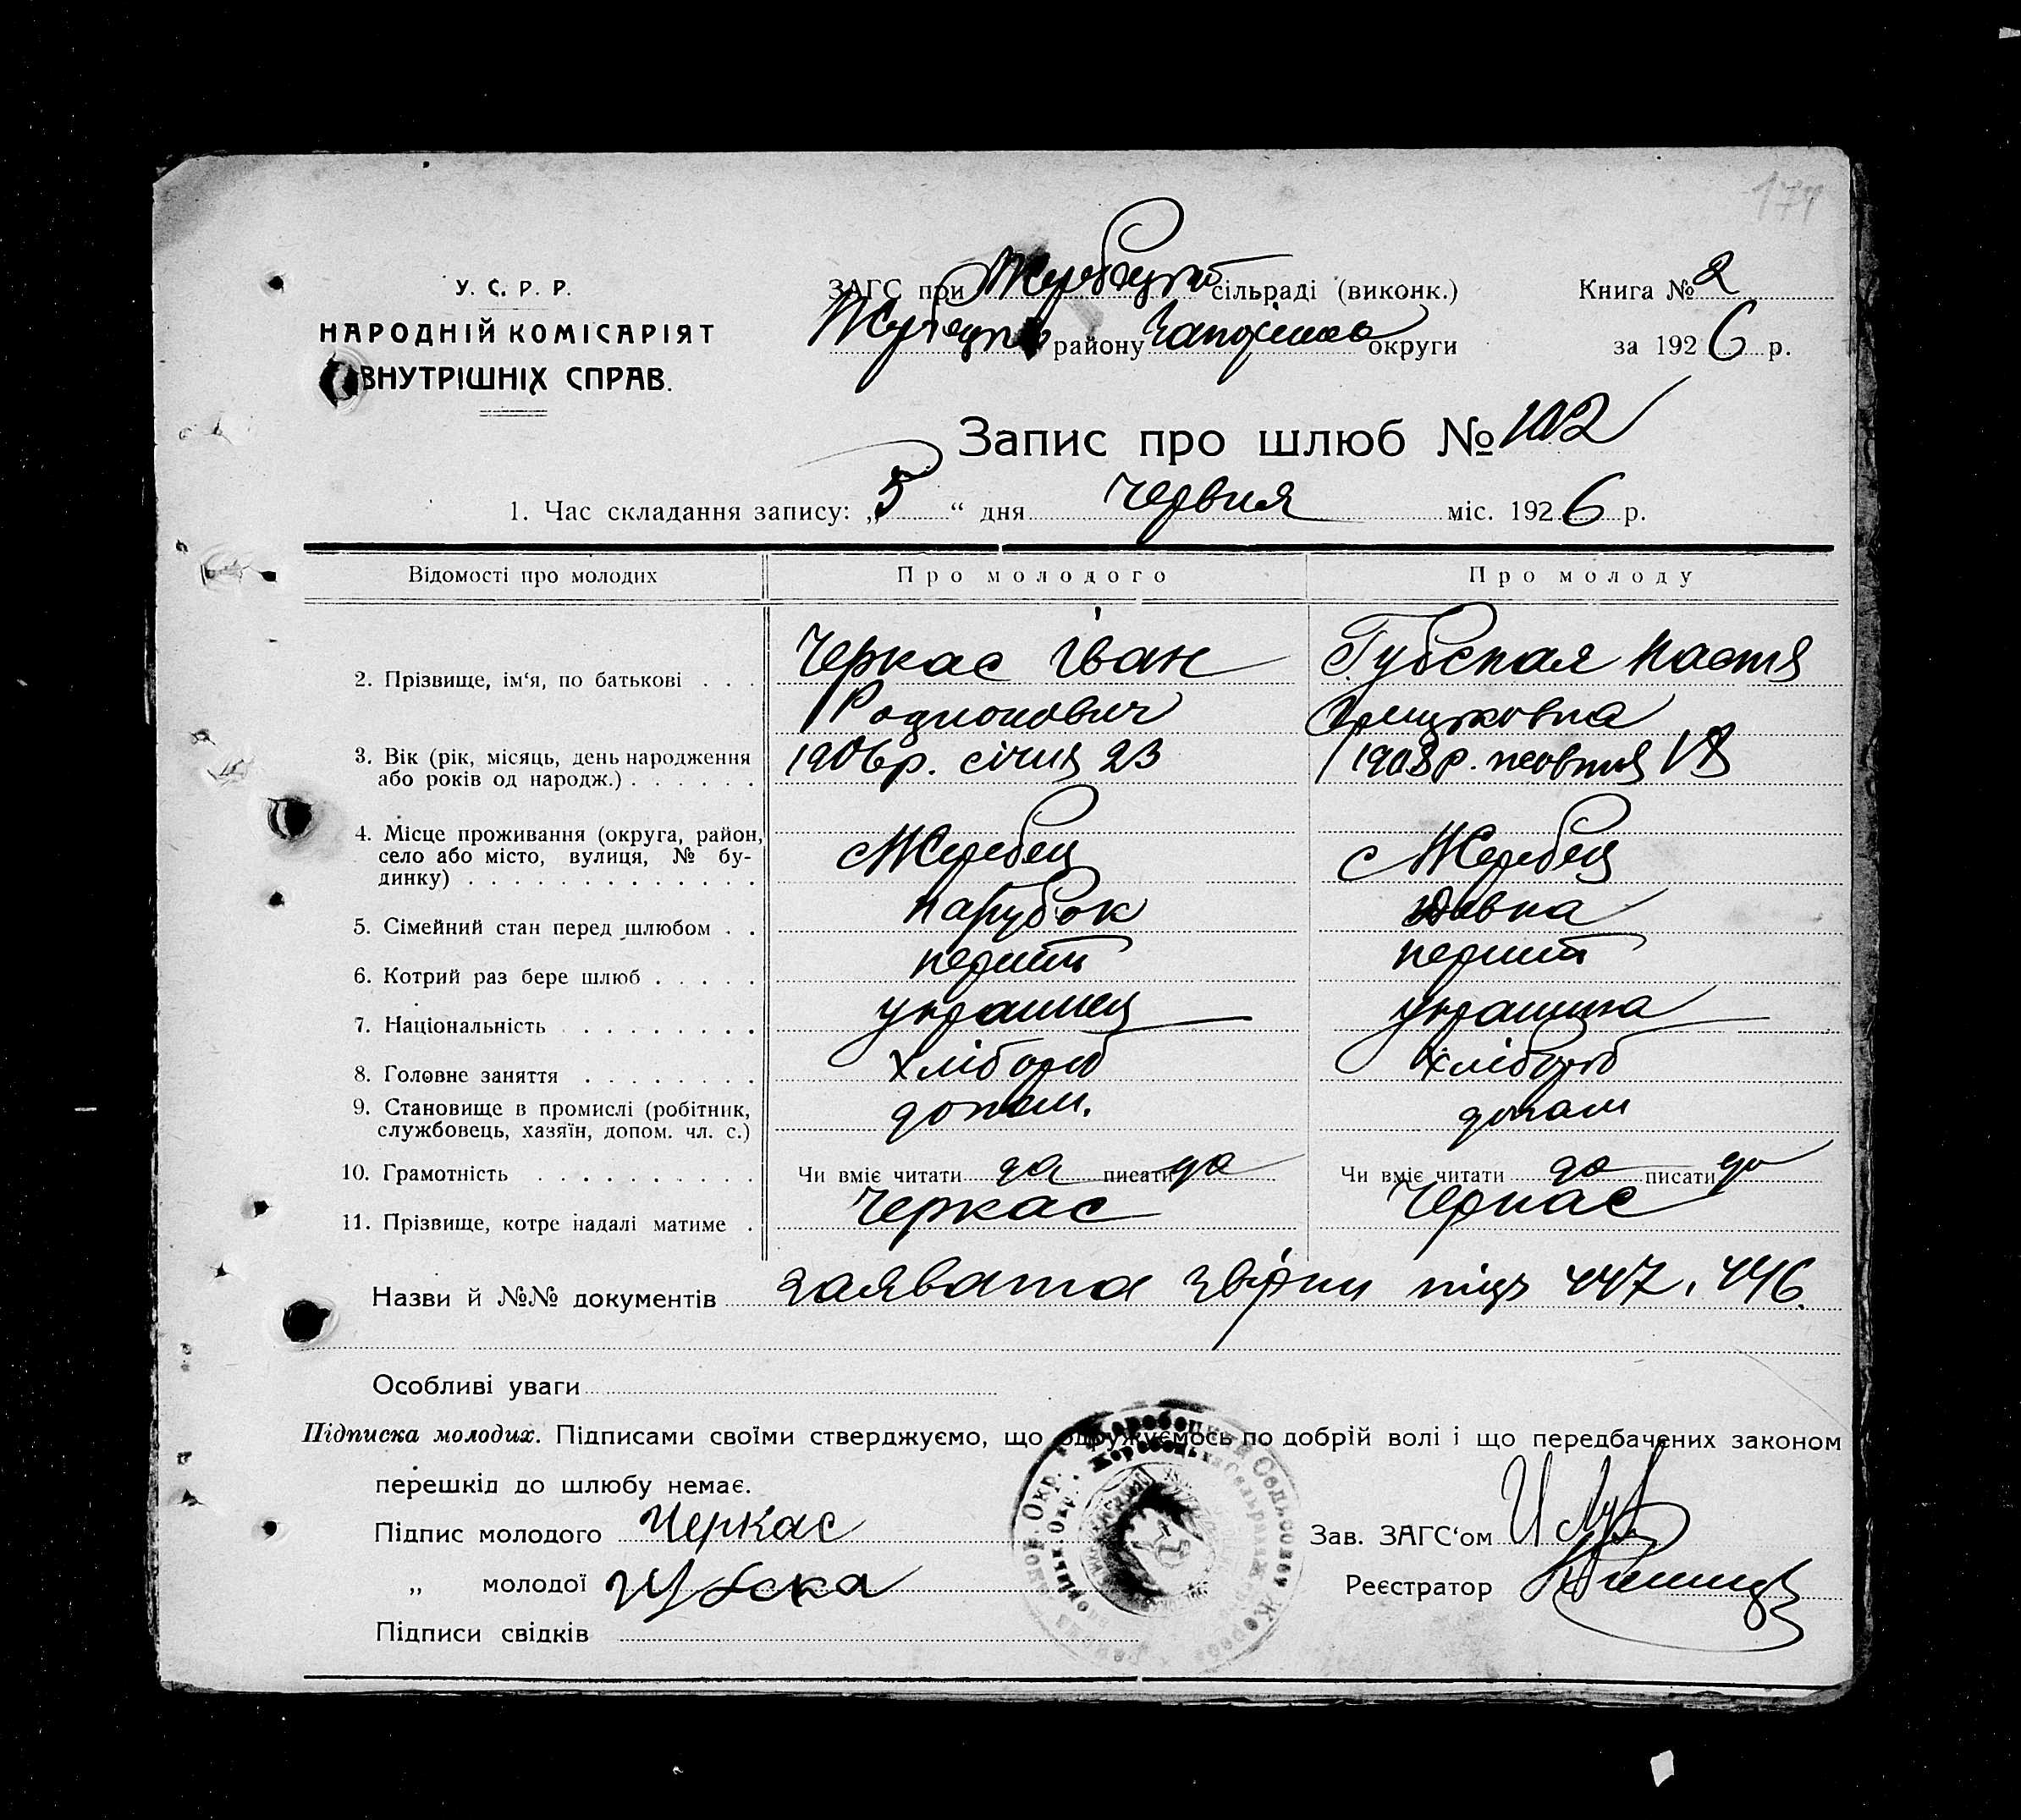 171
У. С. Р. Р.
НАРОДНІЙ КОМІСАРІЯТ
ВНУТРІШНІХ СПРАВ.
ЗАГС при Жеребецькій сільраді (виконк.)
району Запоріжськ округи
Книга № 2
за 1926 р.
Запис про шлюб № 102
1. Час складання запису: „5“ дня червня міс. 1926 р.
Відомості про молодих Про молодого Про молоду
2. Прізвище, ім‘я, по батькові . . . Черкас Іван Губская Настя
Родионович
3. Вік (рік, місяць, день народження
або років од народж.) . . . . . . 1906р. січня 23 1908р. жовтня
4. Місце проживання (округа, район,
село або місто, вулиця, № бу-
динку) . . . . . . . . . . . . . с Жеребец с Жеребец
5. Сімейний стан перед шлюбом . . парубок дівка
6. Котрий раз бере шлюб . . . . . перший перший
7. Національність . . . . . . . . украинец украинка
8. Головне заняття . . . . . . . . хлібороб хлібороб
9. Становище в промислі (робітник,
службовець, хазяїн, допом. чл. с.) допом. допом
10. Грамотність . . . . . . . . . . Чи вміє читати да писати да Чи вміє читати да писати да
11. Прізвище, котре надалі матиме . Черкас Черкас
Назви й №№ документів 447, 446.
Особливі уваги
Підписка молодих. Підписами своїми стверджуємо, що одружуємось по добрій волі і що передбачених законом
перешкід до шлюбу немає.
Підпис молодого Черкас
„ молодої Губска
Підписи свідків
Зав. ЗАГС‘ом
Реєстратор